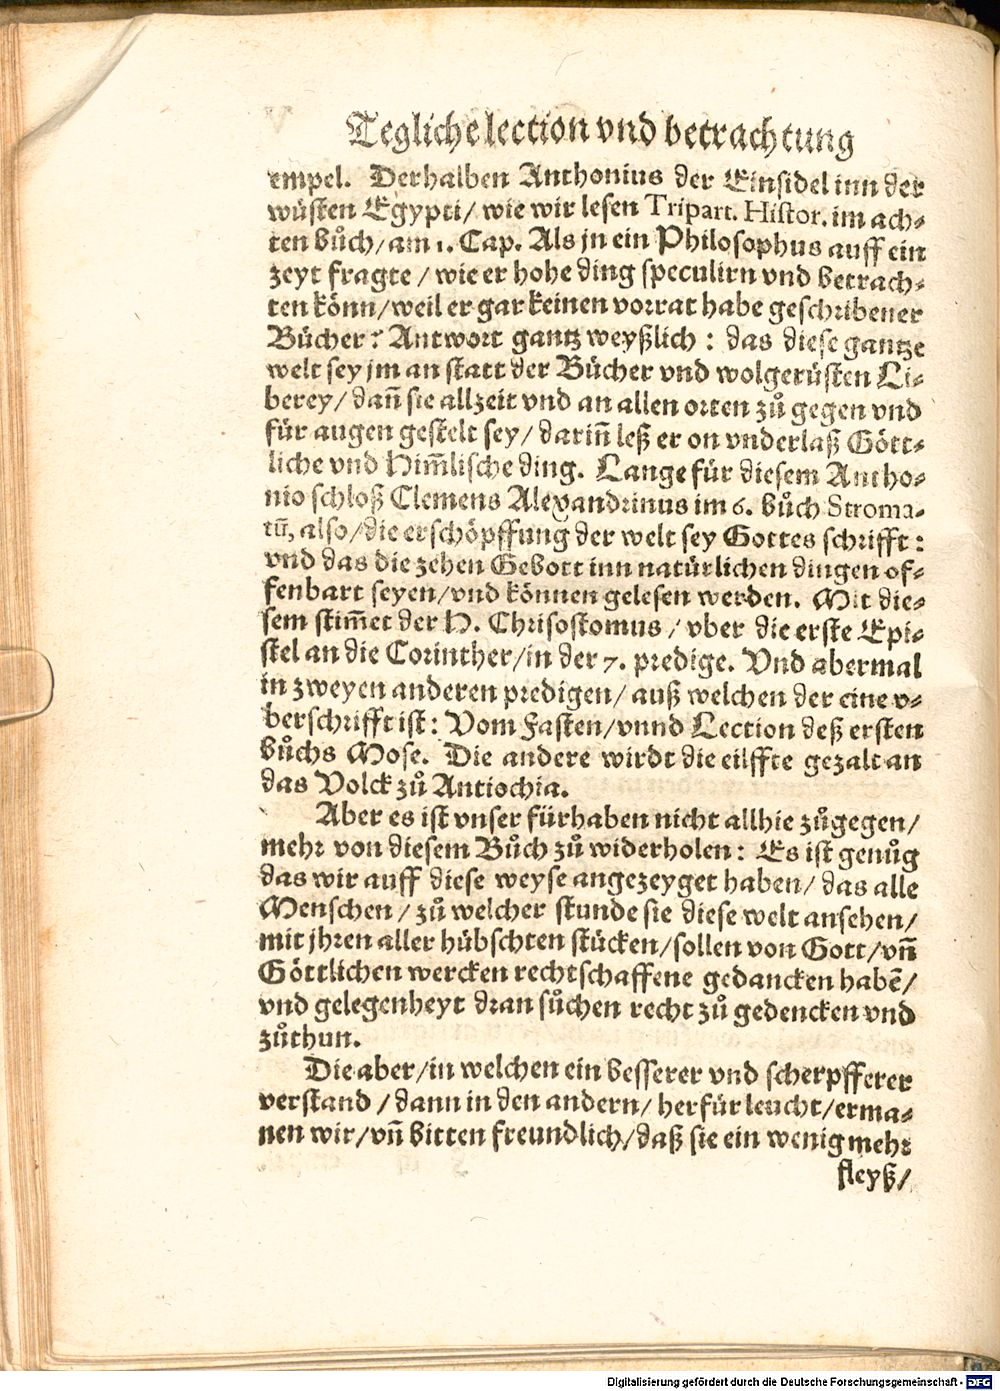 Tegliche lection vnd betrachtung
empel. Derhalben Anthonius der Einsidel inn der
wüsten Egypti/ wie wir lesen Tripart. Histor. im ach⸗
ten bůch/ am 1. Cap. Als jn ein Philosophus auff ein
zeyt fragte / wie er hohe ding speculirn vnd betrach⸗
ten könn/ weil er gar keinen vorrat habe geschribener
Bücher? Antwort gantz weyßlich : das diese gantze
welt sey jm an statt der Bücher vnd wolgerüsten Li⸗
berey/ dañ sie allzeit vnd an allen orten zů gegen vnd
für augen gestelt sey/ dariñ leß er on vnderlaß Gött⸗
liche vnd Him̃lische ding. Lange für diesem Antho⸗
nio schloß Clemens Alexandrinus im 6. bůch Stroma-
tū, also/ die erschöpffung der welt sey Gottes schrifft :
vnd das die zehen Gebott inn natürlichen dingen of⸗
fenbart seyen/ vnd können gelesen werden. Mit die⸗
sem stim̃et der H. Chrisostomus / vber die erste Epi⸗
stel an die Corinther/ in der 7. predige. Vnd abermal
in zweyen anderen predigen/ auß welchen der eine v⸗
berschrifft ist : Vom Fasten/ vnnd Lection deß ersten
bůchs Mose. Die andere wirdt die eilffte gezalt an
das Volck zů Antiochia.
Aber es ist vnser fürhaben nicht allhie zůgegen/
mehr von diesem Bůch zů widerholen : Es ist genůg
das wir auff diese weyse angezeyget haben/ das alle
Menschen / zů welcher stunde sie diese welt ansehen/
mit jhren aller hübschten stücken/ sollen von Gott/ vñ
Göttlichen wercken rechtschaffene gedancken habē/
vnd gelegenheyt dran sůchen recht zů gedencken vnd
zůthun.
Die aber/ in welchen ein besserer vnd scherpfferer
verstand / dann in den andern/ herfür leucht/ erma⸗
nen wir/ vñ bitten freundlich/ daß sie ein wenig mehr
fleyß/
Digitalisierung gefördert durch die Deutsche Forschungsgemeinschaft - DFG